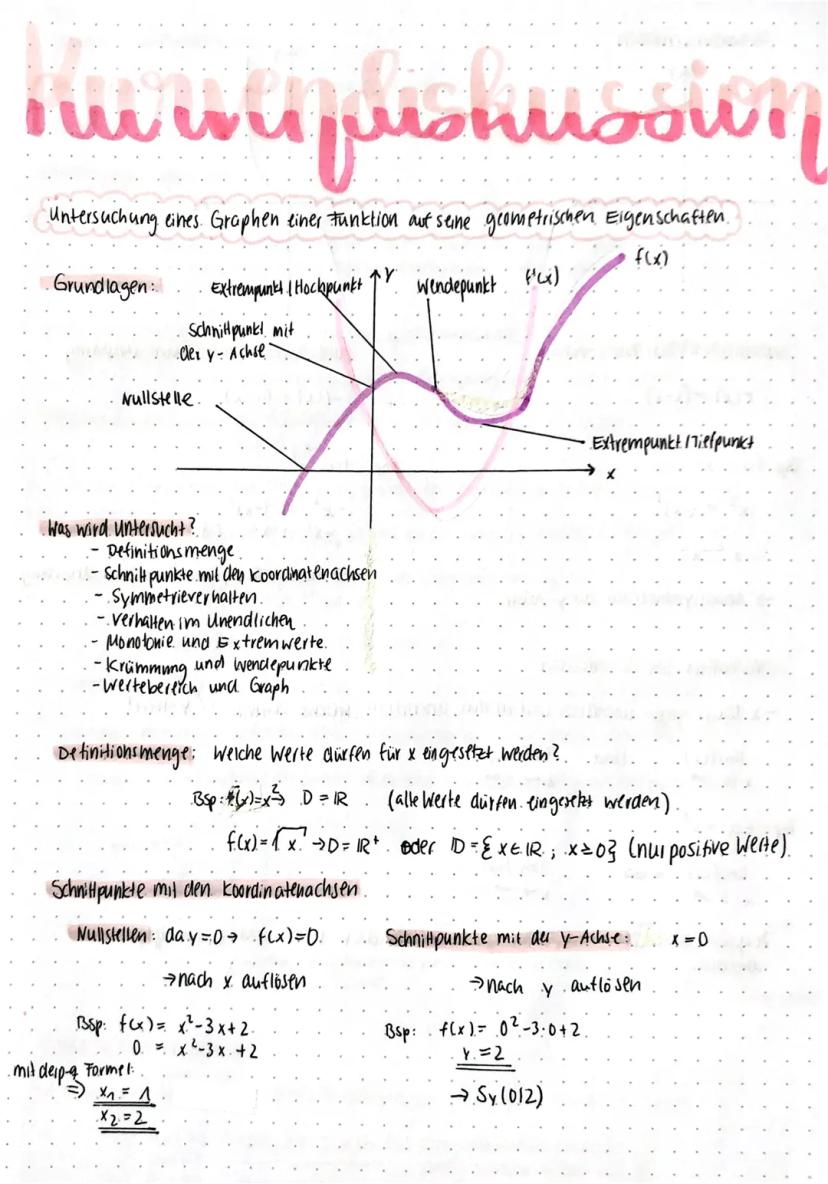 Kurvendiskussion
Untersuchung eines Graphen einer Funktion auf seine geometrischen Eigenschaften.
Grundlagen:
Extrempunkt/Hochpunkt
y
Wendepunkt
f'(x)
f(x)
Schnittpunkt mit
der y-Achse
Nullstelle
Extrempunkt/Tiefpunkt
x
Was wird untersucht?
- Definitionsmenge
- Schnittpunkte mit den Koordinatenachsen
- Symmetrieverhalten
- Verhalten im Unendlichen
- Monotonie und Extremwerte
- Krümmung und Wendepunkte
- Wertebereich und Graph
Definitionsmenge: Welche Werte dürfen für x eingesetzt werden?
Bsp: f(x)=x² → D = ℝ (alle Werte dürfen eingesetzt werden)
f(x)=√x → D = ℝ⁺ oder D={x∈ℝ; x≥0} (nur positive Werte)
Schnittpunkte mit den Koordinatenachsen
Nullstellen: da y=0 → f(x)=0.
→ nach x auflösen
Bsp: f(x) = x²-3x+2
0 = x²-3x+2
mit der p-q Formel:
⇒ x₁ = 1
x₂ = 2
Schnittpunkte mit der y-Achse: x=0
→ nach y auflösen
Bsp: f(x) = 0²-3·0+2
y = 2
→ Sy(0|2)